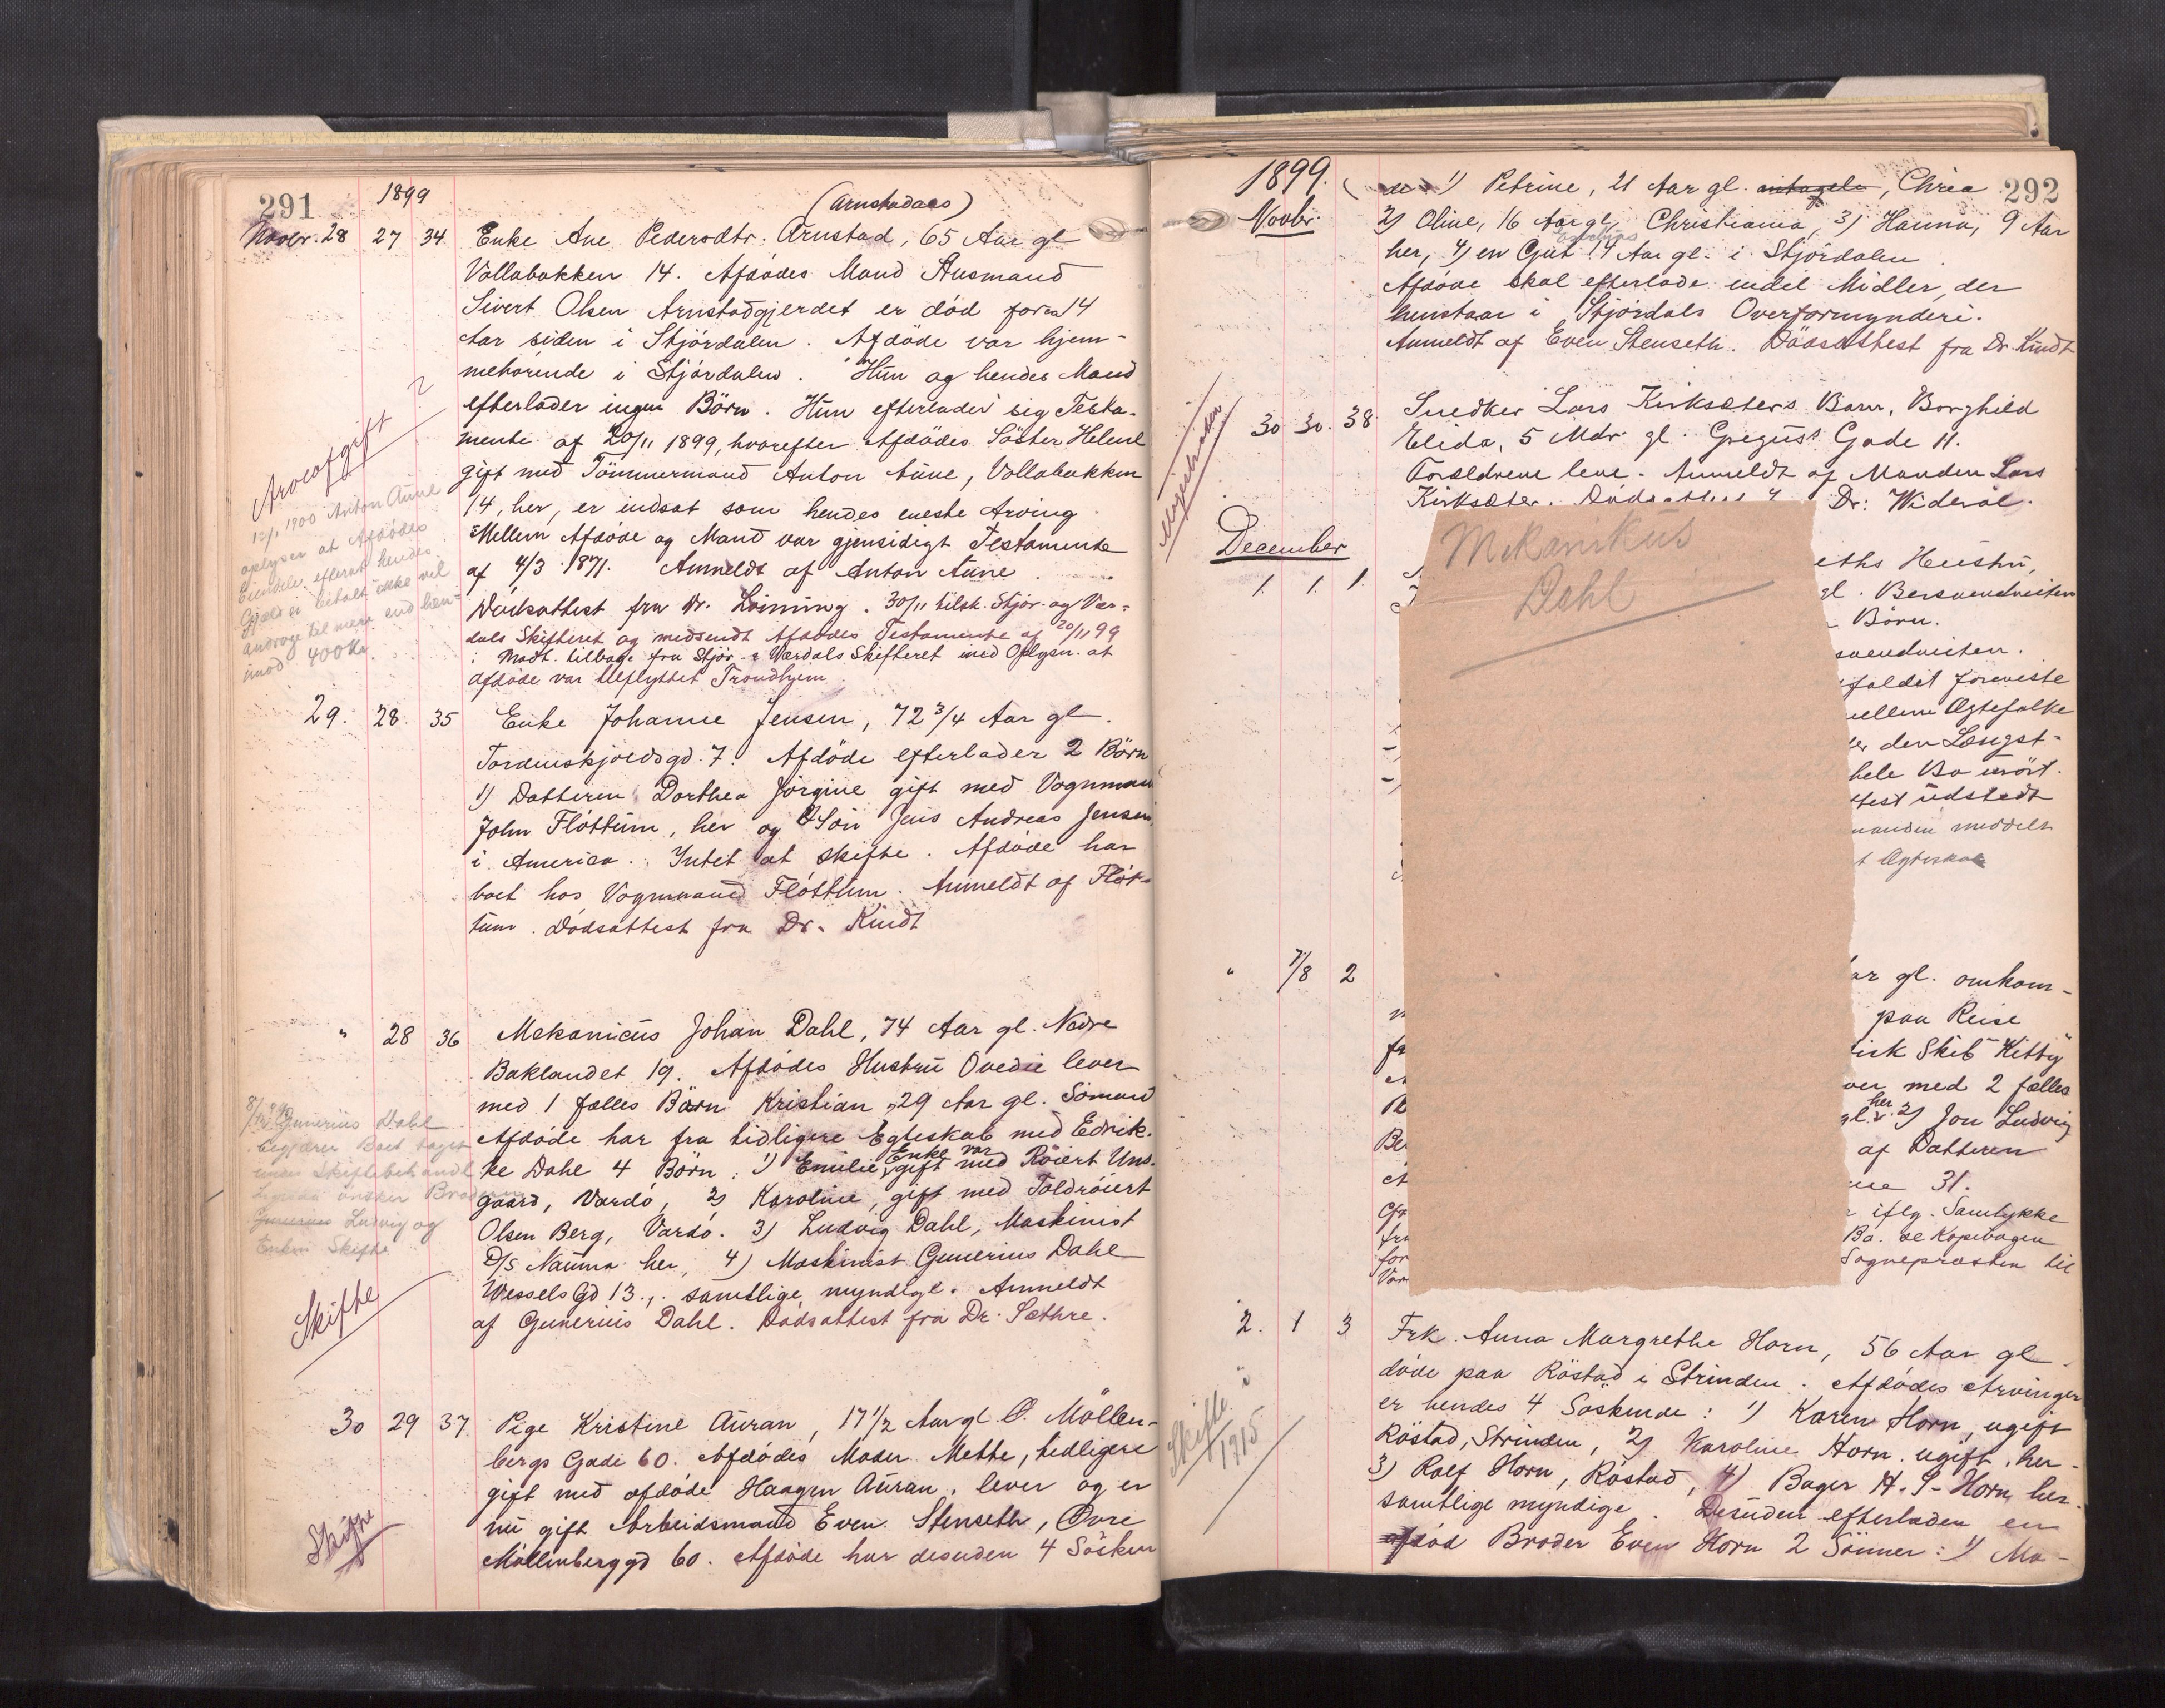 291
1899
(Arnstadaas)
Novbr. 28 27 34 Enke Ane Pedersdtr. Arnstad, 65 Aar gl
Vollabakken 14. Afdödes Mand Husmand
Sivert Olsen Arnstadgjerdet er död for ca 14
Aar siden i Stjördalen. Afdöde var hjem-
mehörende i Stjördalen. Hun og hendes Mand
efterlader ingen Börn. Hun efterlader sig Testa-
mente af 20/11 1899, hvorefter Afdödes Söster Helene
gift med Tömmermand Anton Aune, Vollabakken
14, her, er indsat som hendes eneste Arving
Mellem Afdöde og Mand var gjensidigt Testamente
af 4/3 1871. Anmeldt af Anton Aune
Dödsattest fra Dr. Lorining. 30/11 tilsk. Stjör. og Vær-
dals Skifteret og medsendt Afdödes Testamente af 20/11 99
Modt. tilbage fra Stjör- & Værdals Skifteret med Oplysn. at
Afdöde var tilflyttet Trondhjem
Arveafgift ?
1900 Anton Aune
oplyser at Afdödes
Eiendele efterat hendes
Gjæld er betalt ikke vil
andrage til mere end hen-
imod 400 Kr.
29. 28. 35 Enke Johanne Jensen, 72 3/4 Aar gl.
Tordenskjoldsgd. 7. Afdöde efterlader 2 Börn
1) Datteren Dorthea Jörgine gift med Vognmand
John Flöttum, her og 2 Sön Jens Andreas Jensen
i America. Intet at skifte. Afdöde har
boet hos Vognmand Flöttum. Anmeldt af Flöt-
tum. Dödsattest fra Dr. Kindt
" 28 36 Mekanicus Johan Dahl, 74 Aar gl. Nedre
Baklandet 19. Afdödes Hustru Ovedie lever
med 1 fælles Barn Kristian, 29 Aar gl. Sömand
Afdöde har fra tidligere Egteskab med Edrik-
ke Dahl 4 Börn: 1) Emilie, Enke var gift med Röiert Uns-
gaard, Vardö, 2) Karoline, gift med Toldröiert
Olsen Berg, Vardö. 3) Ludvig Dahl, Maskinist
D/S Nauma her, 4) Maskinist Gunerius Dahl
Wessels Gd 13., samtlige myndige. Anmeldt
af Gunerius Dahl. Dödsattest fra Dr. Sæthre.
Gunerius Dahl
begjærer Boet taget
under Skiftebehandl
önsker Broderen
Gunerius Ludvig og
Enken Skifte
Skifte
30 29 37 Pige Kristine Auran, 17 1/2 Aar gl. Ö. Möllen-
bergs Gade 60. Afdödes Moder Mette, tidligere
gift med afdöde Haagen Auran, lever og er
nu gift Arbeidsmand Even Stenseth, Övre
Möllenberggd 60. Afdöde har desuden 4 Sösken
Skifte
1899.
Novbr.
292
1) Petrine, 21 Aar gl., Chria
2) Oline, 16 Aar gl, Christiania, 3) Hanna, 9 Aar
her, 4) en Gut 14 Aar gl. i Stjördalen.
Afdöde skal efterlade endel Midler, der
henstaar i Stjördals Overformynderi.
Anmeldt af Even Stenseth. Dödsattest fra Dr. Kindt
Magistraden
30 30. 38. Snedker Lars Kirksæters Barn, Borghild
Elida, 5 Mdr gl. Gregus's Gade 11.
Forældrene leve. Anmeldt af Manden Lars
Kirksæter. Dödsattest Dr: Wideröe.
December
1. 1. 1.
Mekanikus
Dahl
eths Hustru,
gl. Bersvendveiten
Börn.
svendveiten.
foldet foreviste
mellem Ægtefolke
den Længst-
hele Bo uskift.
attest udstedt
manden meddelt
t Ægteskab
" 7/8 2
ar gl. omkom-
paa Reise
isk Skib "Kitty"
ver med 2 fælles
gl. her. 2) Jon Ludvig
af Datteren
31.
iflg. Samtykke
Sognepræsten til
2. 1 3 Frk. Anna Margrethe Horn, 56 Aar gl.
döde paa Röstad i Strinden. Afdödes Arvinger
er hendes 4 Söskende: 1) Karen Horn, ugift
Röstad, Strinden, 2) Karoline Horn, ugift, her.
3) Rolf Horn, Röstad, 4) Bager H. P. Horn, her.
samtlige myndige. Desuden efterladen en
afdöd Broder Even Horn 2 Sönner: 1) Ma-
Skifte i
1915